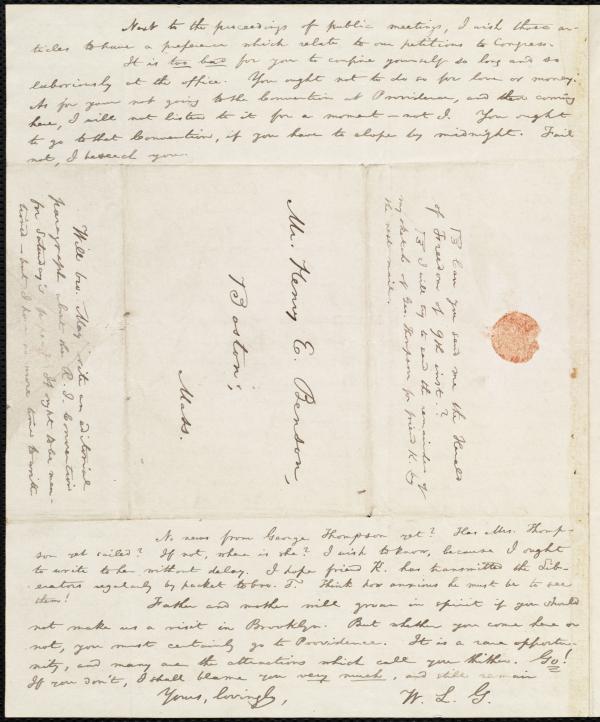 Next to the proceedings of public meetings, I wish those ar-
ticles to have a preference which relate to our petitions to Congress.
It is too bad for you to confine yourself so long and so
laboriously at the office. You ought not to do so for love or money.
As for your not going to the Convention at Providence, and then coming
here, I will not listen to it for a moment—not I. You ought
to go to that Convention, if you have to elope by midnight. Fail
not, I beseech you.
Will bro. May write an editorial
paragraph about the R. I. Convention
for Saturday's paper? It ought to be men-
tioned—but I have no more time to write
Mr. Henry E. Benson,
Boston,
Mass.
Can you send me the Herald
of Freedom of 9th inst.?
I will try to send the remainder of
my sketch of Geo. Thompson for friend K. by
the next mail.
No news from George Thompson yet? Has Mrs. Thomp-
son yet sailed? If not, where is she? I wish to know, because I ought
to write to her without delay. I hope friend K. has transmitted the Lib-
erators regularly by packet to bro. T. Think how anxious he must be to see
them!
Father and mother will groan in spirit if you should
not make us a visit in Brooklyn. But whether you come here or
not, you must certainly go to Providence. It is a rare opportu-
nity, and many are the attractions which call you thither. Go!
If you don't, I shall blame you very much, and still remain
Yours, lovingly,
W. L. G.